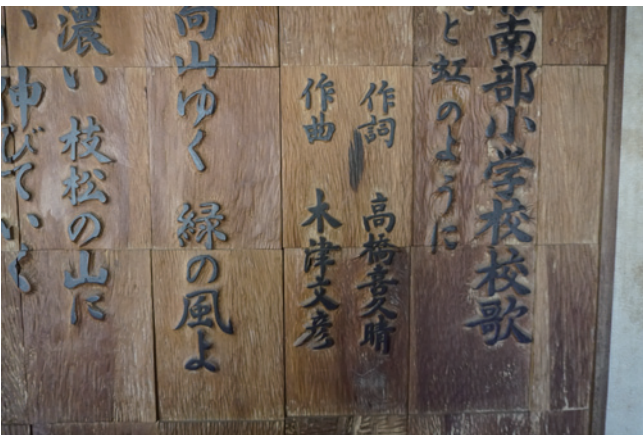 南部小学校校歌
と虹のように
作詞 高橋喜久晴
作曲 木津文彦
向山ゆく 緑の風よ
濃い 枝松の山に
伸びていく